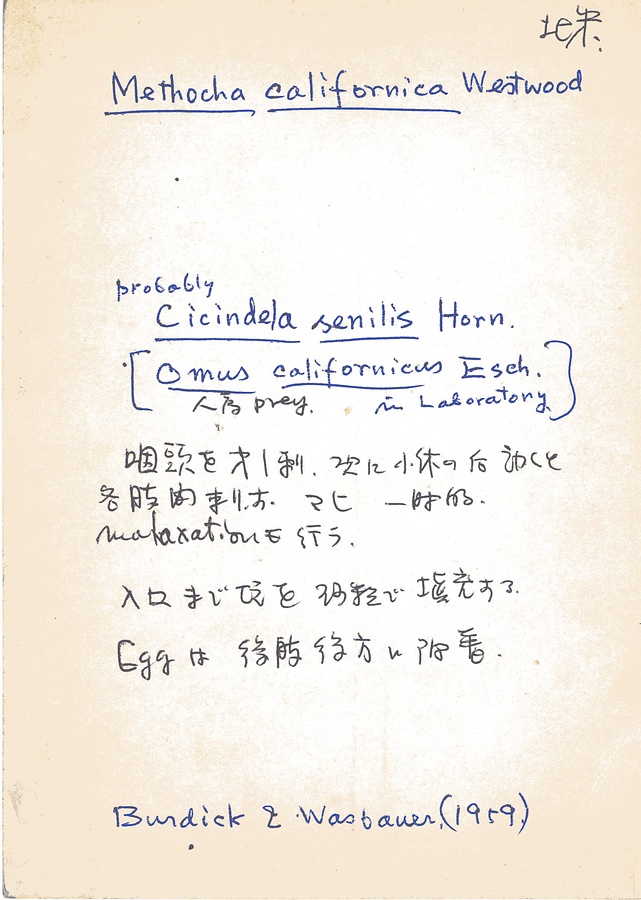 北米.
Methocha californica Westwood
probably
Cicindela senilis Horn.
[Omus californicus Esch.]
人為 prey. in Laboratory
咽頭を才1刺. 次に小休の后 動くと
各肢間刺す. マヒ 一時的.
malaxationも行う.
入口まで坑を 砂粒で 填充する.
Eggは 後肢後方に附着.
Burdick & Wasbauer.(1959)